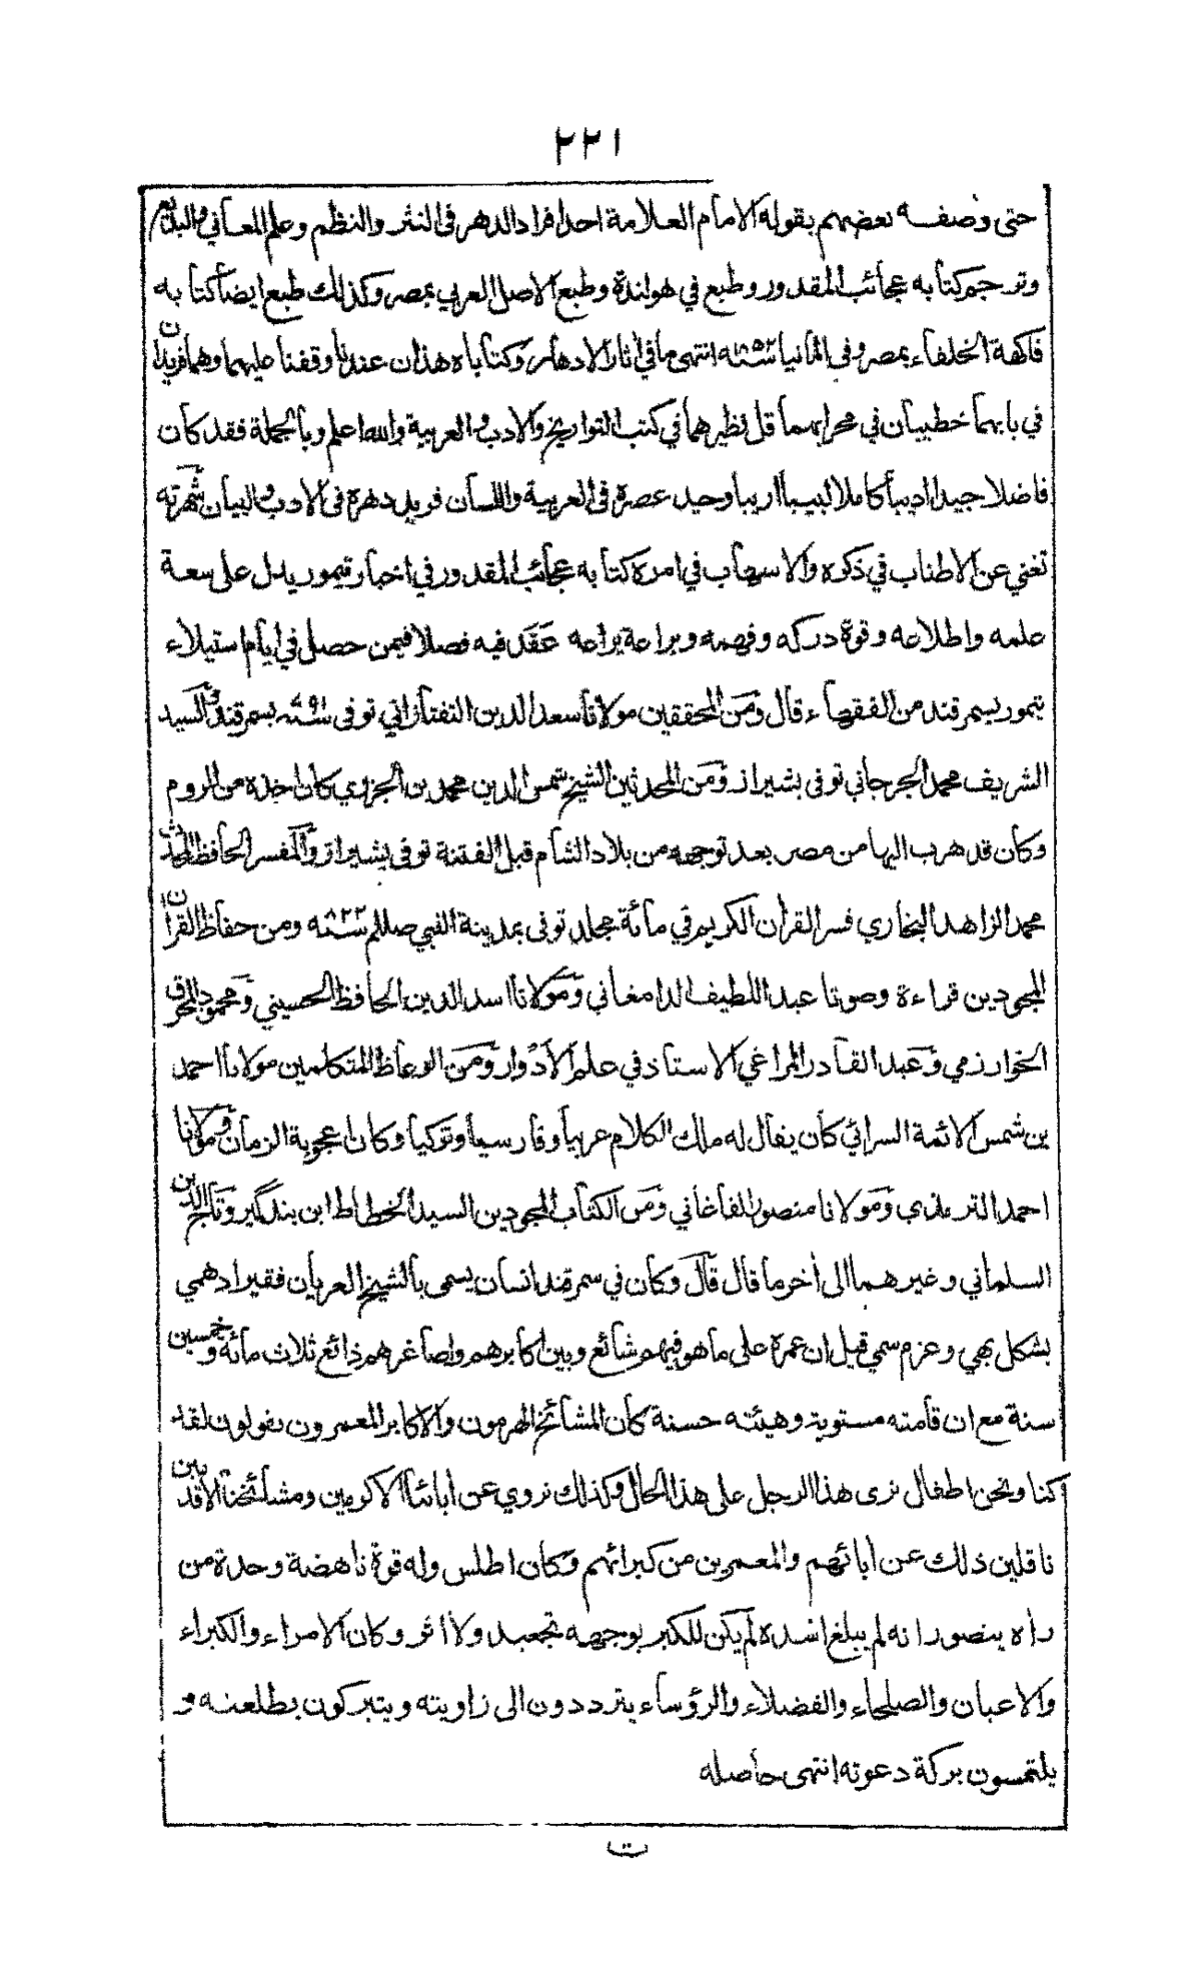 ٢٢١
حتى وصفه بعضهم بقوله الامام العلامة احد افراد الدهر فى النثر والنظم وعلم المعاني والبديع
وترجم كتابه عجائب المقدور وطبع في هولندة وطبع الاصل العربي بمصر وكذلك طبع ايضا كتابه
فاكهة الخلفاء بمصر وفي المانيا سنة ١٨٥٢ انتهى ما في اثار الادهار وكتاباه هذان عندنا وقفنا عليهما وهما فريدان
في بابهما خطيبان في محرابهما قل نظيرهما في كتب التواريخ والادب والعربية والله اعلم وبالجملة فقد كان
فاضلا جيدا اديبا كاملا لبيبا اريبا وحيد عصره في العربية واللسان فريد دهره فى الادب والبيان شهرته
تغني عن الاطناب في ذكره والاسهاب في امره كتابه عجائب المقدور في اخبار تيمور يدل على سعة
علمه واطلاعه وقوة دركه وفهمه وبراعة يراعه عقد فيه فصلا فيمن حصل في ايام استيلاء
تيمور بسمرقند من الفقهاء قال ومن المحققين مولانا سعد الدين التفتازاني توفى سنة ٧٩١ بسمرقند والسيد
الشريف محمد الجرجاني توفى بشيراز ومن المحدثين الشيخ شمس الدين محمد بن الجزري كان اخذه من الروم
وكان قد هرب اليها من مصر بعد توجهه من بلاد الشام قبل الفتنة توفى بشيراز والمفسر الحافظ المحدث
محمد الزاهد البخاري فسر القرآن الكريم في مائة مجلد توفى بمدينة النبي صللم سنة ٨٢٢ ومن حفاظ القرآن
المجودين قراءة وصوتا عبد اللطيف الدامغاني ومولانا اسد الدين الحافظ الحسيني ومحمود المحرق
الخوارزمي وعبد القادر المراغي الاستاذ في علم الادوار ومن الوعاظ المتكلمين مولانا احمد
بن شمس الائمة السرائي كان يقال له ملك الكلام عربيا وفارسيا وتركيا وكان اعجوبة الزمان ومولانا
احمد الترمذي ومولانا منصور القاغاني ومن الكتاب المجودين السيد الخطاط ابن بندگير وتاج الدين
السلماني وغيرهما الى أخر ما قال قال وكان في سمرقند انسان يسمى بالشيخ العريان فقير ادهمي
بشكل بهي وعزم سمي قيل ان عمره على ما هو فيهم شائع وبين اكابرهم واصاغرهم ذائع ثلاث مائة وخمسين
سنة مع ان قامته مستوية وهيئته حسنة كان المشائخ الهرمون والاكابر المعمرون يقولون لقد
كنا ونحن اطفال نرى هذا الرجل على هذا الحال وكذلك نروي عن ابائنا الاكرمين ومشائخنا الاقدمين
ناقلين ذلك عن ابائهم والمعمرين من كبرائهم وكان اطلس وله قوة ناهضة وحدة من
رأه يتصور انه لم يبلغ اشده لم يكن للكبر بوجهه تجعيد ولا اثر وكان الامراء والكبراء
والاعيان والصلحاء والفضلاء والرؤساء يترددون الى زاويته ويتبركون بطلعته و
يلتمسون بركة دعوته انتهى حاصله
ت